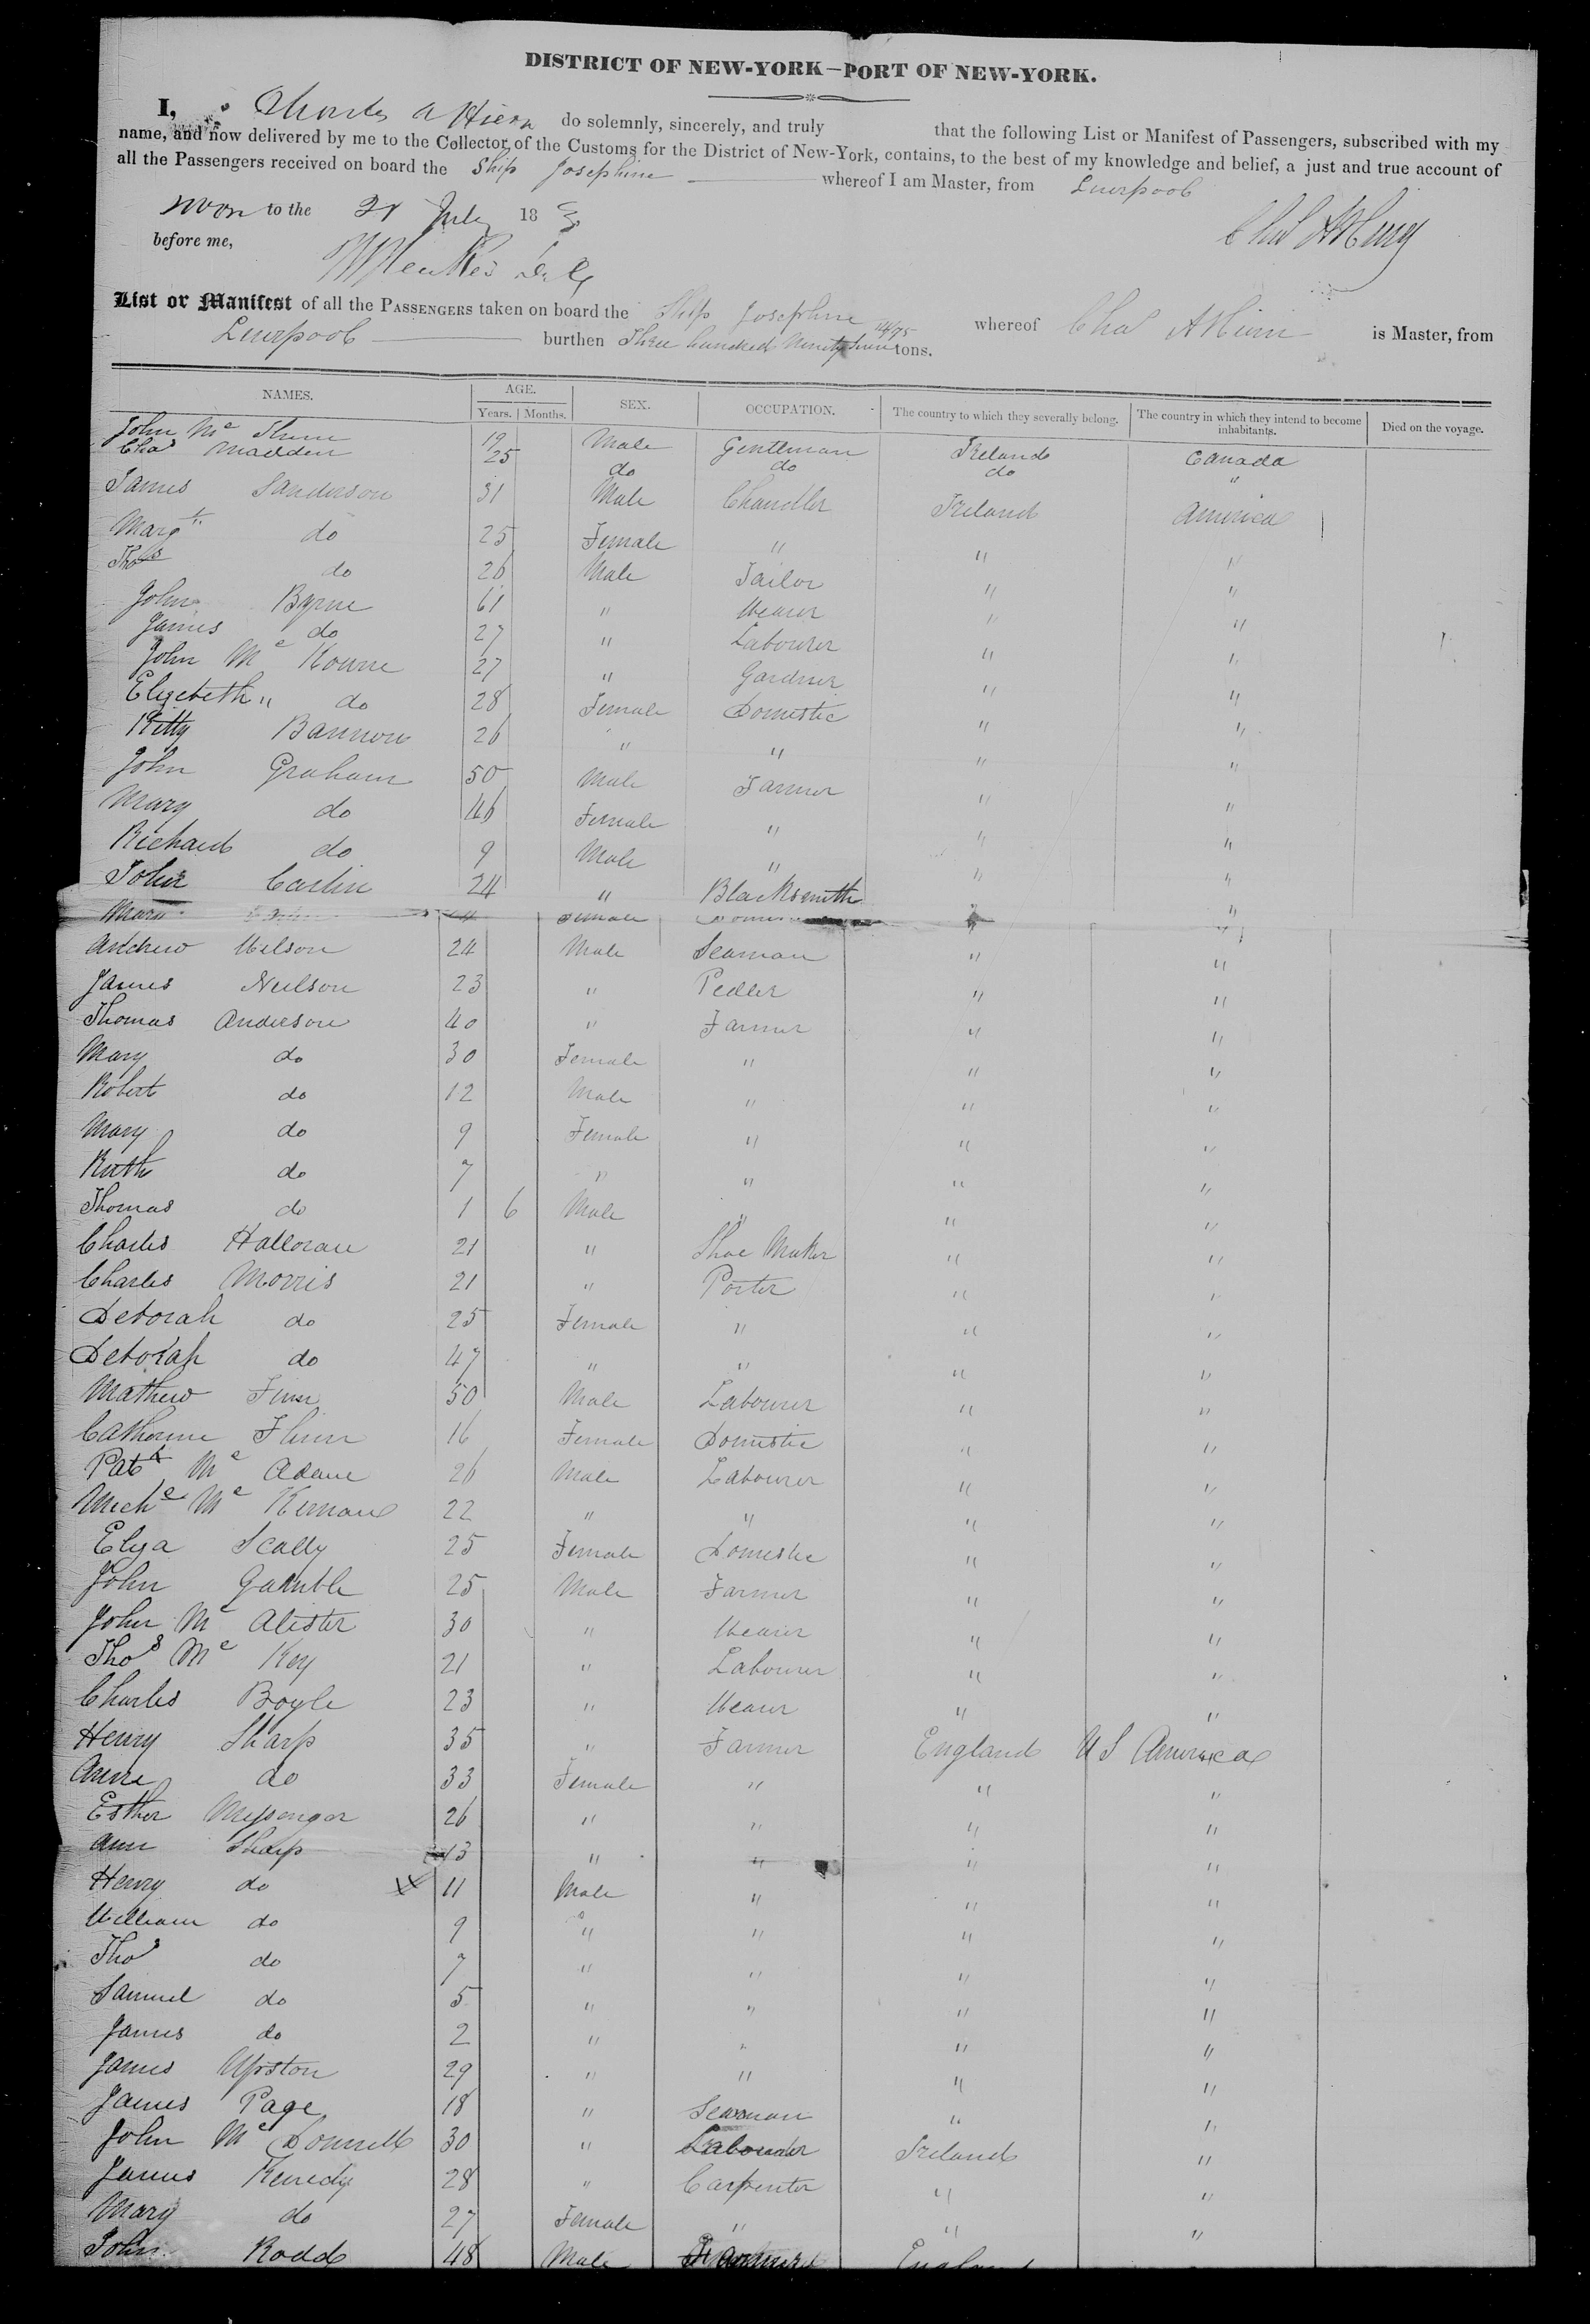 DISTRICT OF NEW-YORK—PORT OF NEW-YORK.
I, Charles A do solemnly, sincerely, and truly that the following List or Manifest of Passengers, subscribed with my
name, and now delivered by me to the Collector of the Customs for the District of New-York, contains, to the best of my knowledge and belief, a just and true account of
all the Passengers received on board the Ship Josephine whereof I am Master, from Liverpool
sworn to the 21 July 18
before me,
List or Manifest of all the PASSENGERS taken on board the Ship Josephine whereof Chas A is Master, from
Liverpool burthen Three hundred Ninety tons.
NAMES. AGE. Years. Months. SEX. OCCUPATION. The country to which they severally belong. The country in which they intend to become inhabitants. Died on the voyage.
John Mc 19 Male Gentleman Ireland Canada
Chas Madden 25 do do do "
James Sanderson 31 Male Chandler Ireland America
Margt do 25 Female " " "
Thos do 26 Male Tailor " "
John Byrne 61 " Weaver " "
James do 27 " Labourer " "
John Mc Kourne 27 " Gardner " "
Elizebeth " do 28 Female Domestic " "
Kitty Bannon 26 " " " "
John Graham 50 Male Farmer " "
Mary do 46 Female " " "
Richard do 9 Male " " "
John Carlin 24 " Blacksmith " "
Mary Female "
Andrew Wilson 24 Male Seaman " "
James Neilson 23 " Pedler " "
Thomas Anderson 40 " Farmer " "
Mary do 30 Female " " "
Robert do 12 Male " " "
Mary do 9 Female " " "
Ruth do 7 " " " "
Thomas do 1 6 Male " " "
Charles Halloran 21 " Shoe Maker " "
Charles Morris 21 " Porter " "
Deborah do 25 Female " " "
Deborah do 47 " " " "
Mathew 50 Male Labourer " "
Catherine Flinn 16 Female Domestic " "
Patk Mc Adam 26 Male Labourer " "
Miche Mc Kernan 22 " " " "
Eliza Scally 25 Female Domestic " "
John Gamble 25 Male Farmer " "
John Mc Alister 30 " Weaver " "
Thos Mc Key 21 " Labourer " "
Charles Boyle 23 " Weaver " "
Henry Sharp 35 " Farmer England U S America
Anne do 33 Female " " "
Esther Messenger 26 " " " "
Ann Sharp 13 " " " "
Henry do 11 Male " " "
William do 9 " " " "
Thos do 7 " " " "
Samuel do 5 " " " "
James do 2 " " " "
James Upston 29 " " " "
James Page 18 " Seaman " "
John Mc Donnell 30 " Labourer Ireland "
James Kenedy 28 " Carpenter " "
Mary do 27 Female " " "
John Rodd 48 Male England